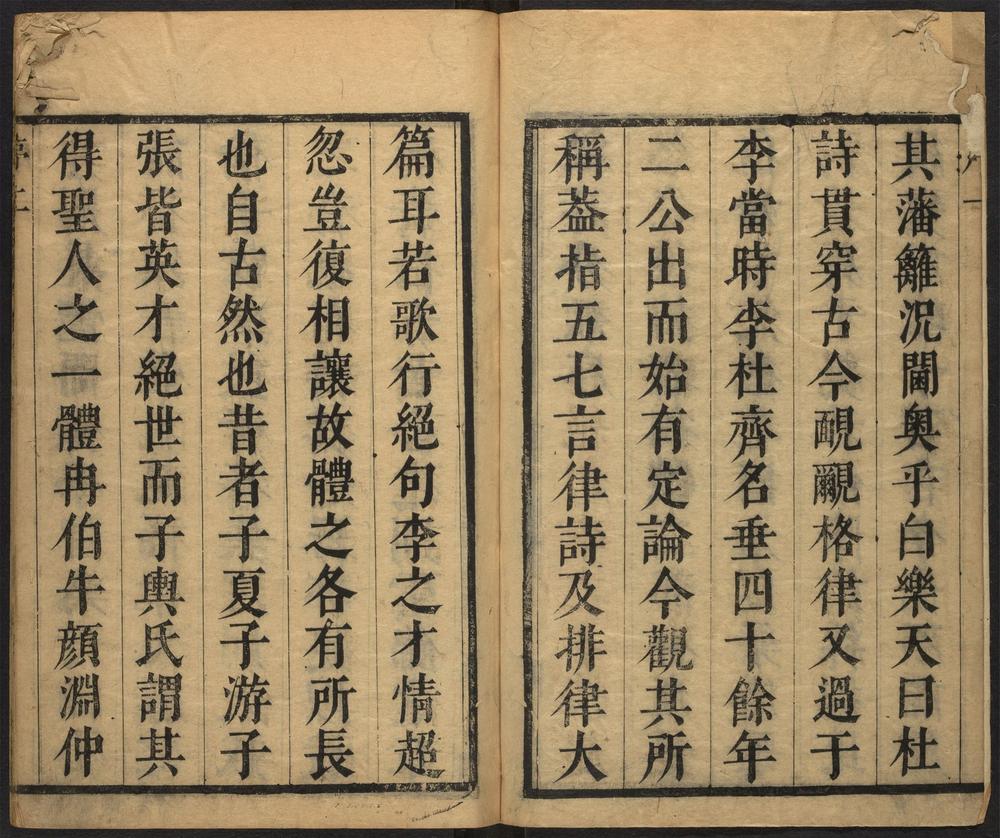 其藩籬況閫奥乎白樂天曰杜
詩貫穿古今覼𦆯格律又過于
李當時李杜齊名垂四十餘年
二公出而始有定論今觀其所
稱葢指五七言律詩及排律大
篇耳若歌行絕句李之才情超
忽豈復相讓故體之各有所長
也自古然也昔者子夏子游子
張皆英才絕世而子輿氏謂其
得聖人之一體冉伯牛顏淵仲